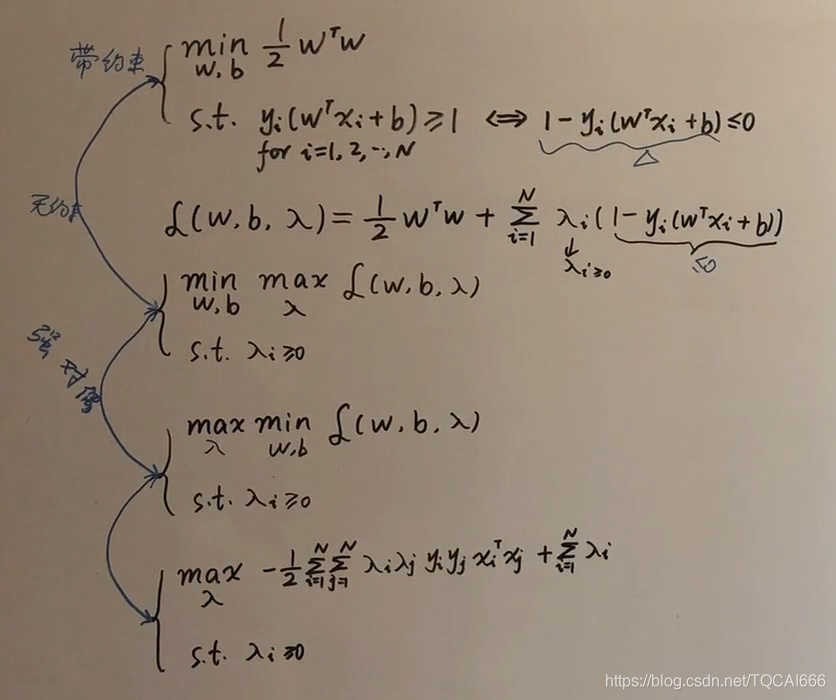 带约束
min 1/2 wᵀw
w, b
s.t. yᵢ(wᵀxᵢ+b)≥1 ⇔ 1-yᵢ(wᵀxᵢ+b)≤0
for i=1, 2, ..., N
Δ
无约束
L(w, b, λ) = 1/2 wᵀw + Σᵢ₌₁ᴺ λᵢ(1-yᵢ(wᵀxᵢ+b))
λᵢ≥0
≤0
min max L(w, b, λ)
w, b λ
s.t. λᵢ≥0
强对偶
max min L(w, b, λ)
λ w,b
s.t. λᵢ≥0
max -1/2 Σᵢ₌₁ᴺ Σⱼ₌₁ᴺ λᵢλⱼ yᵢyⱼ xᵢᵀxⱼ + Σᵢ₌₁ᴺ λᵢ
λ
s.t. λᵢ≥0
https://blog.csdn.net/TQCAI666